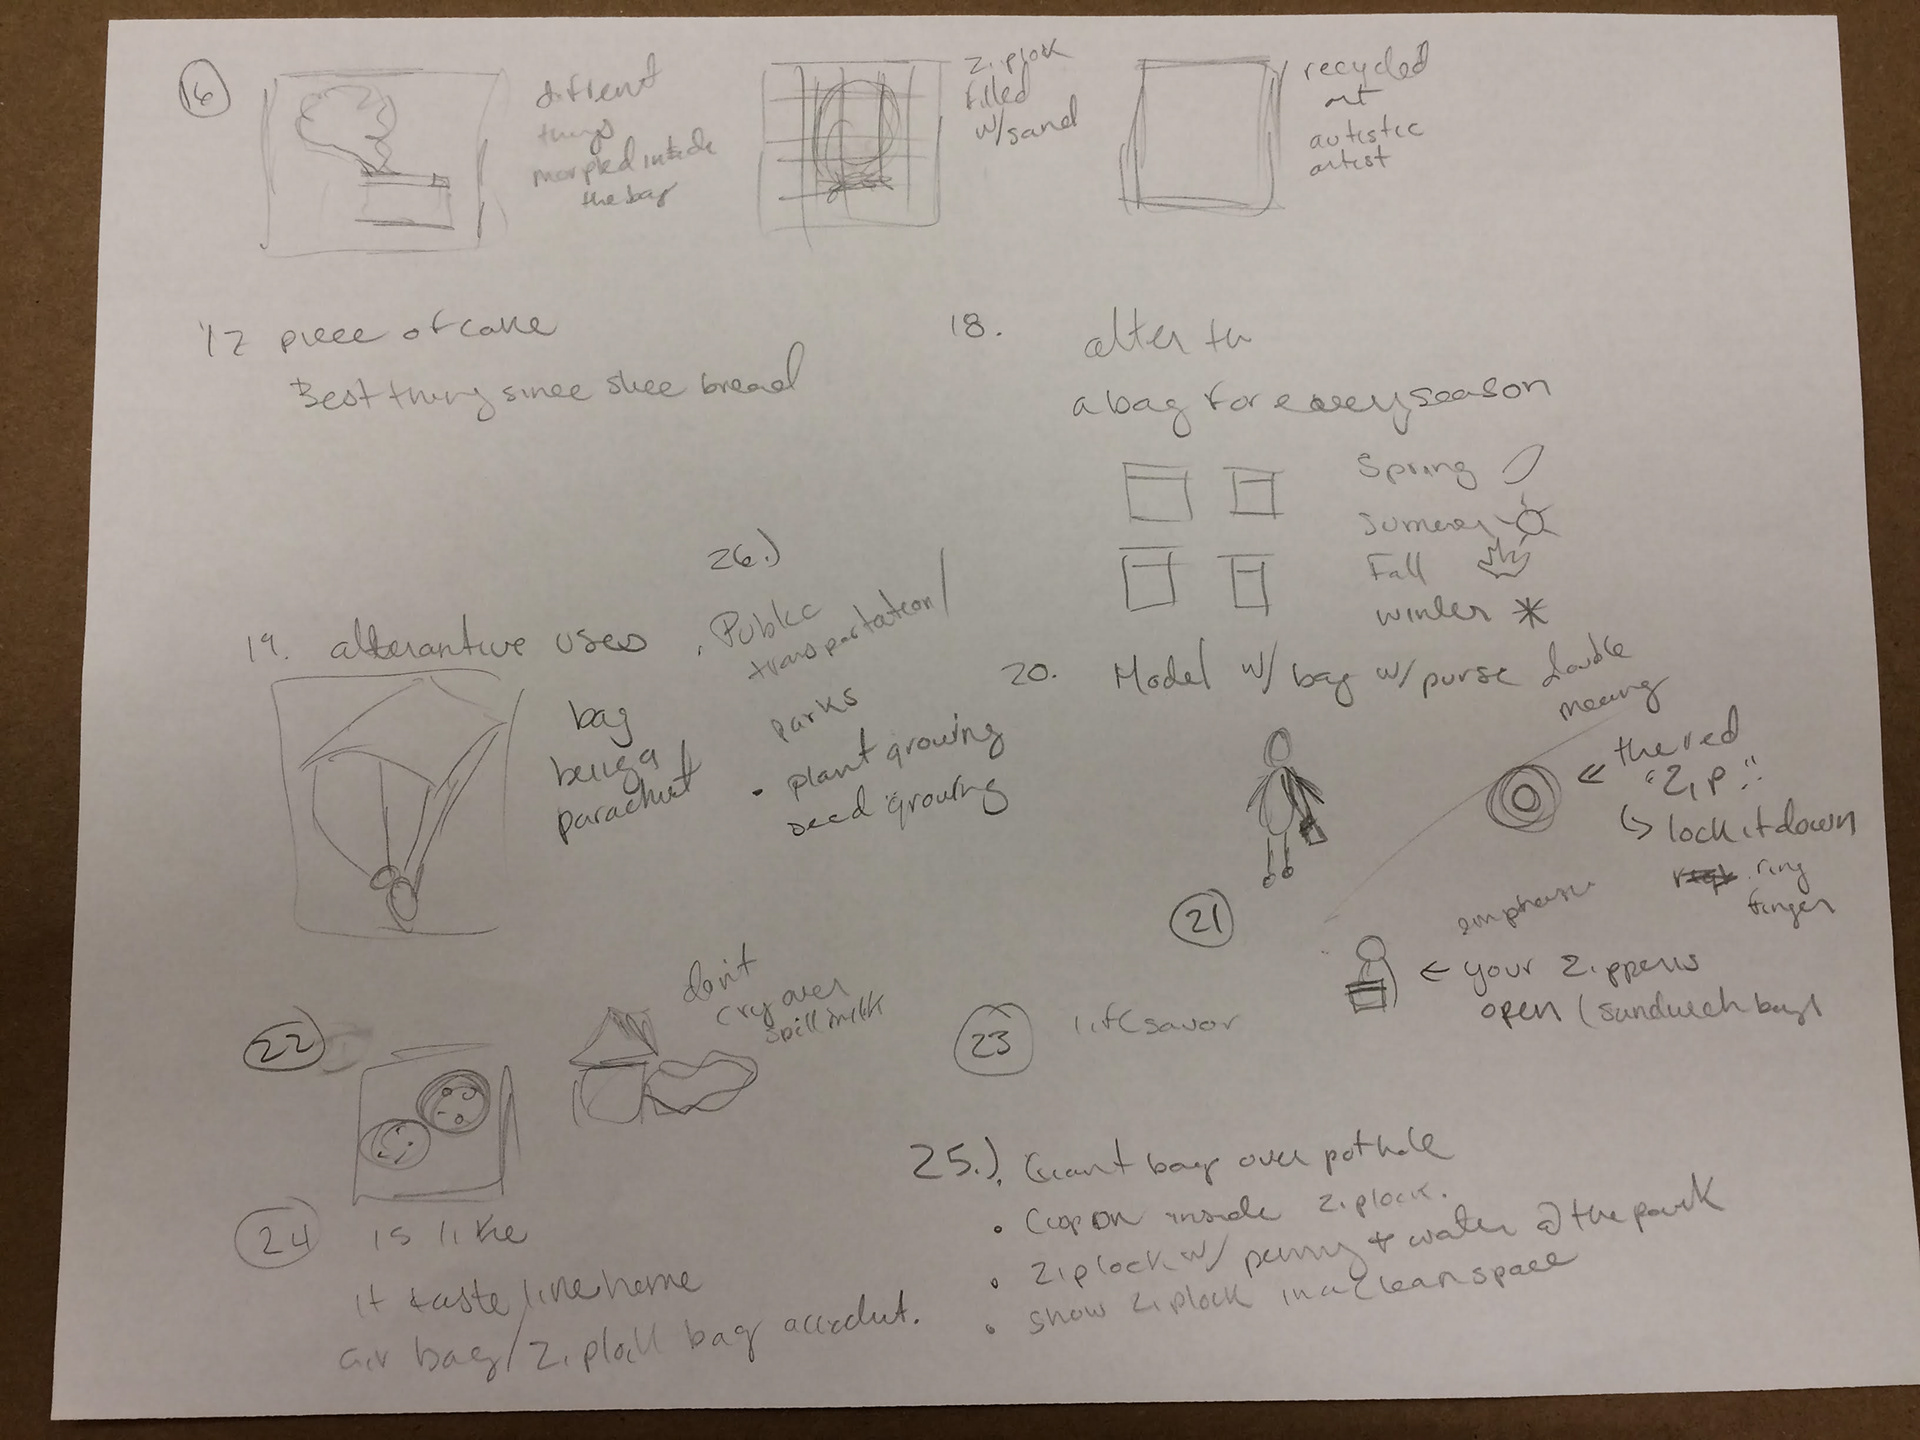 16
different
things
morpled inside
the bag
Ziplok
filled
w/sand
recycled
art
autistic
artist
17 piece of cake
Best thing since slice bread
18.
alter th
a bag for every season
Spring
Summer
Fall
winter
19. alterantive uses
bag
being a
parachut
26.)
. Public
transportation/
parks
• plant growing
seed growing
20. Model w/ bag w/ purse double
meaning
← the red
"Zip":
↳ lock it down
ring
finger
21
emphasis
← your zippers
open (sandwich bag)
22
don't
cry over
spill milk
23 lifesavor
24 is like
it taste like home
air bag/Ziplock bag
25.) Giant bag over pothole
• Cupon inside ziplock.
• Ziplock w/ penny + water @ the park
• show ziplock in a clean space